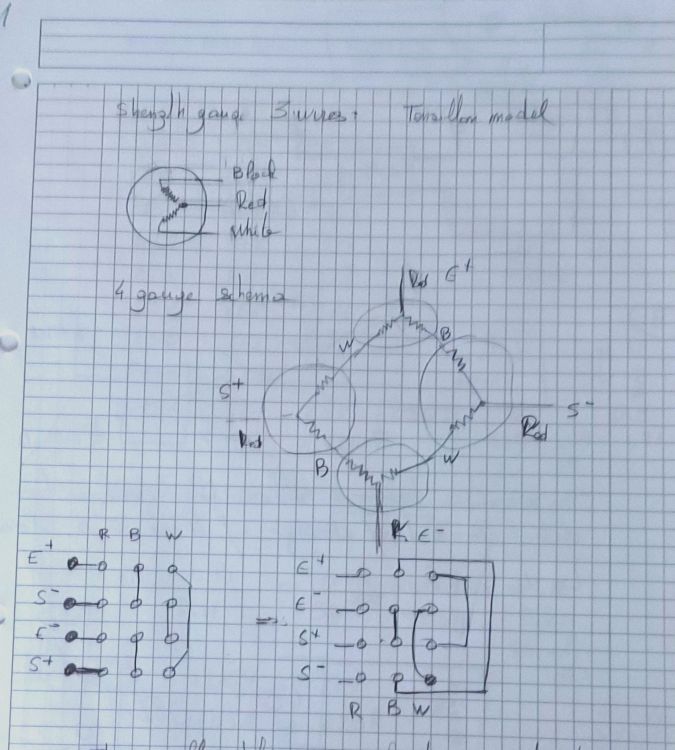 1
Strength gauge 3 wires: Torsillon model
Black
Red
White
4 gauge schema
Red E+
W
B
S+
Red
S-
Red
B
W
R E-
R B W
E+
S-
E-
S+
=
E+
E-
S+
S-
R B W